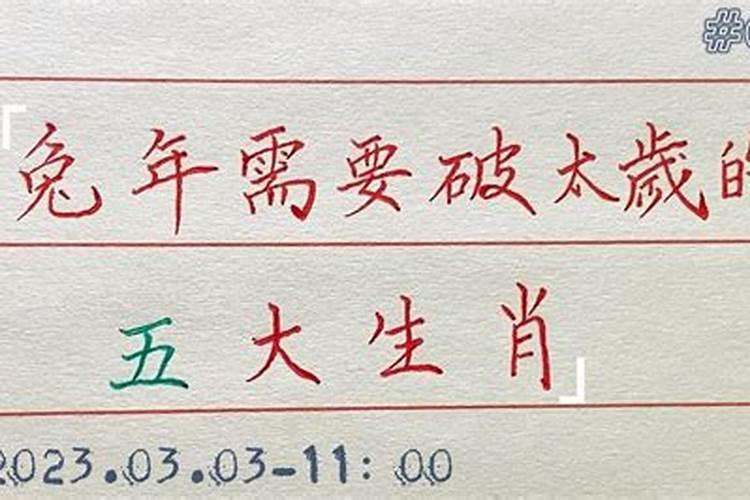 #
「兔年需要破太歲的
五大生肖」
2023.03.03-11:00